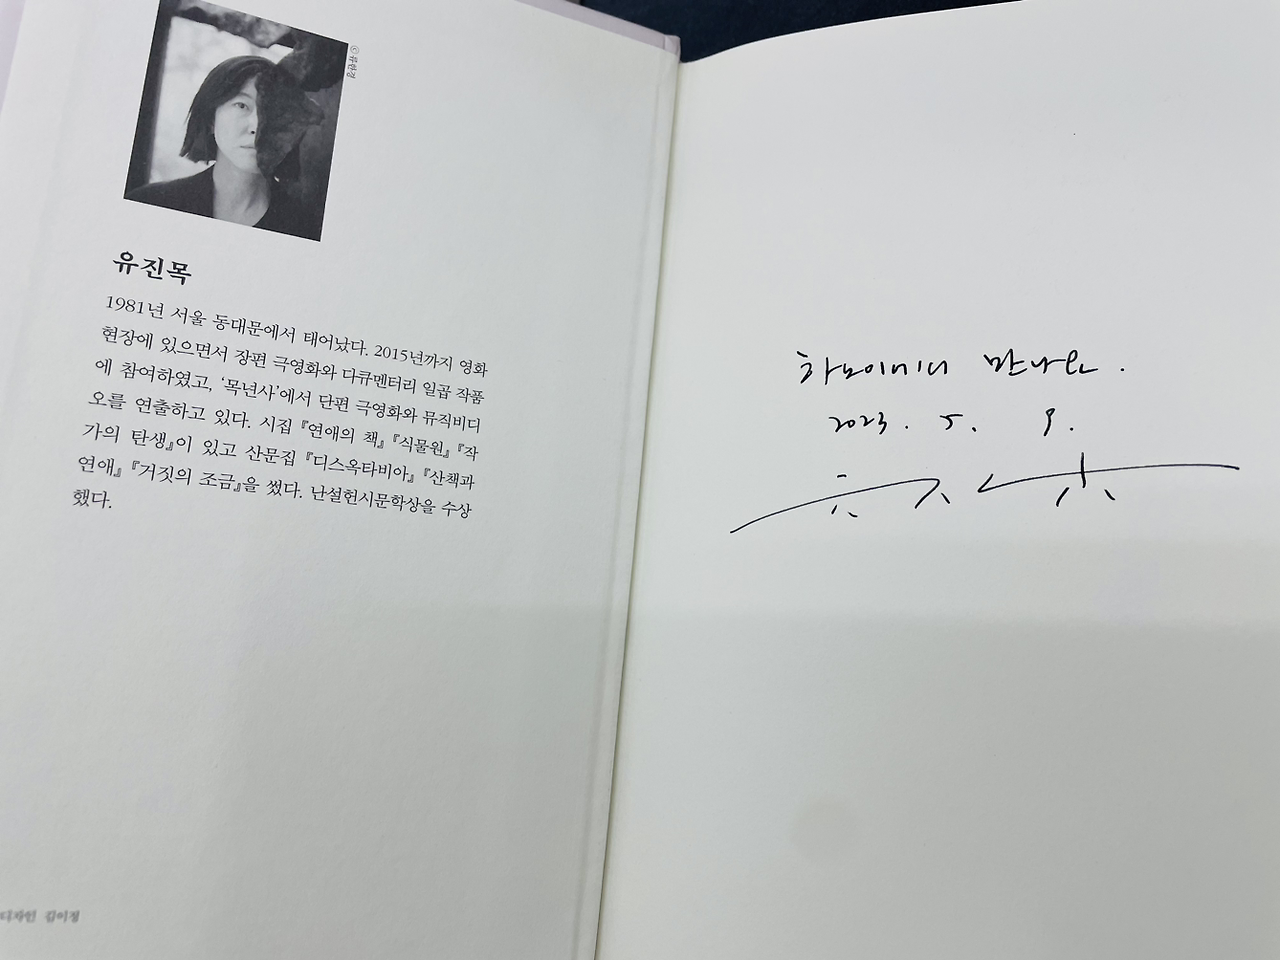 ©류한경
유진목
1981년 서울 동대문에서 태어났다. 2015년까지 영화
현장에 있으면서 장편 극영화와 다큐멘터리 일곱 작품
에 참여하였고, ‘목년사’에서 단편 극영화와 뮤직비디
오를 연출하고 있다. 시집 『연애의 책』 『식물원』 『작
가의 탄생』이 있고 산문집 『디스옥타비아』 『산책과
연애』 『거짓의 조금』을 썼다. 난설헌시문학상을 수상
했다.
디자인 김이정
만나요.
2023. 5. 9.